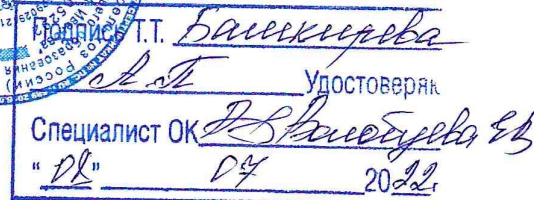 Подпись Т.Т. Башкирева
А.П Удостоверяю
Специалист ОК Волобуева ЕВ
"08" 07 2022